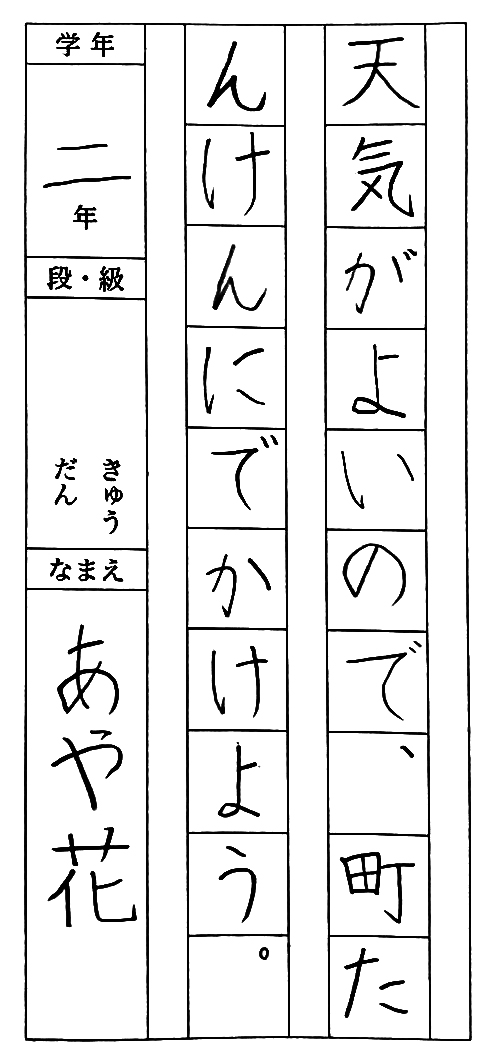 天気がよいので、町た
んけんにでかけよう。
学年
二年
段・級
きゅう
だん
なまえ
あや花